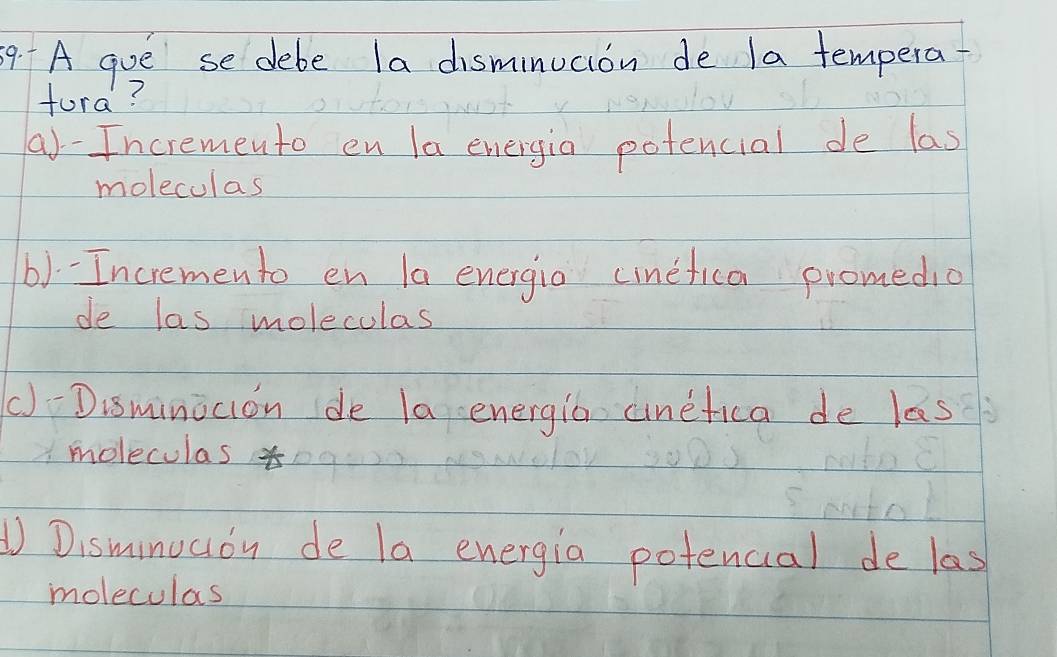 59.- A qué se debe la disminución de la tempera-
tura?
a).- Incremento en la energia potencial de las
moleculas
b).- Incremento en la energia cinética promedio
de las moleculas
c) - Disminución de la energía cinética de las
moleculas *
d) Disminución de la energía potencial de las
moleculas